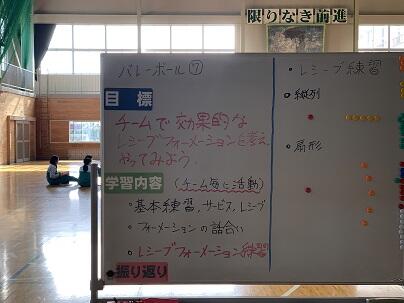 限りなき前進
バレーボール⑦
目標
チームで効果的な
レシーブフォーメーションを考え、
やってみよう。
学習内容
(チーム毎に活動)
・基本練習,サービス,レシーブ
・フォーメーションの話合い
・レシーブフォーメーション練習
振り返り
・レシーブ練習
・縦列
・扇形